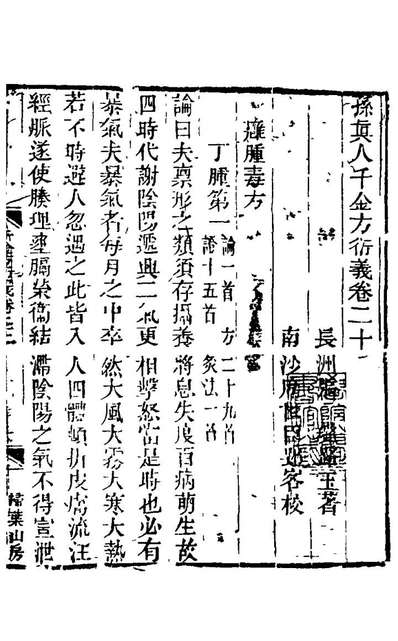 孫真人千金方衍義卷二十
長洲張璐路玉著
南沙席世臣郢客校
癰腫毒方
丁腫第一 論一首 方二十九首 證十五首 灸法一首
論曰夫稟形之類須存攝養將息失度百病萌生故
四時代謝陰陽遞興二氣更相擊怒當是時也必有
暴氣夫暴氣者每月之中卒然大風大霧大寒大熱
若不時避人忽遇之此皆入人四體頓折皮膚流注
經脈遂使腠理壅膈榮衛結滯陰陽之氣不得宣泄
掃葉山房